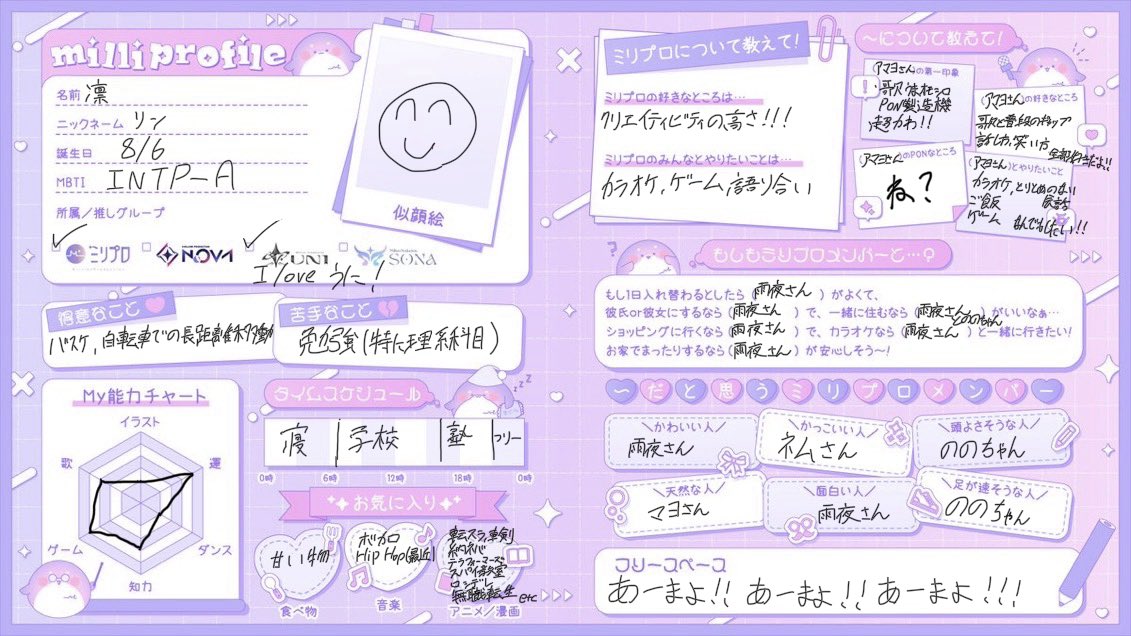 milli profile
名前 凛
ニックネーム リン
誕生日 8/6
MBTI INTP-A
所属／推しグループ
ミリプロ NOVA UNI SONA
I love うに!
似顔絵
得意なこと
バスケ,自転車での長距離移動
苦手なこと
勉強(特に理系科目)
My能力チャート
イラスト
運
ダンス
知力
ゲーム
歌
タイムスケジュール
寝 学校 塾 フリー
0時 6時 12時 18時 0時
お気に入り
甘い物
食べ物
ボカロ
HipHop(最近)
音楽
転スラ,車剣
約ネバ
テラフォーマーズ
スパイ教室
ロシデレ
無職転生 etc
アニメ／漫画
ミリプロについて教えて!
ミリプロの好きなところは…
クリエイティビティの高さ!!!
ミリプロのみんなとやりたいことは…
カラオケ,ゲーム,語り合い
〜について教えて!
(アマヨさん)の第一印象
PON製造機
超かわ!!
(アマヨさん)の好きなところ
歌と普段のギャップ
話し方,笑い方
全部好きだよ!!
(アマヨさん)のPONなところ
ね？
(アマヨさん)とやりたいこと
カラオケ,とりとめのない
ご飯 会話
ゲーム なんでもしたい!!
もしもミリプロメンバーと…?
もし1日入れ替わるとしたら（雨夜さん）がよくて、
彼氏or彼女にするなら（雨夜さん）で、一緒に住むなら（雨夜さんとののちゃん）がいいなぁ…
ショッピングに行くなら（雨夜さん）で、カラオケなら（雨夜さん）と一緒に行きたい!
お家でまったりするなら（雨夜さん）が安心しそう〜!
〜だと思うミリプロメンバー
＼かわいい人／
雨夜さん
＼かっこいい人／
ネムさん
＼頭よさそうな人／
ののちゃん
＼天然な人／
マヨさん
＼面白い人／
雨夜さん
＼足が速そうな人／
ののちゃん
フリースペース
あーまよ!! あーまよ!! あーまよ!!!